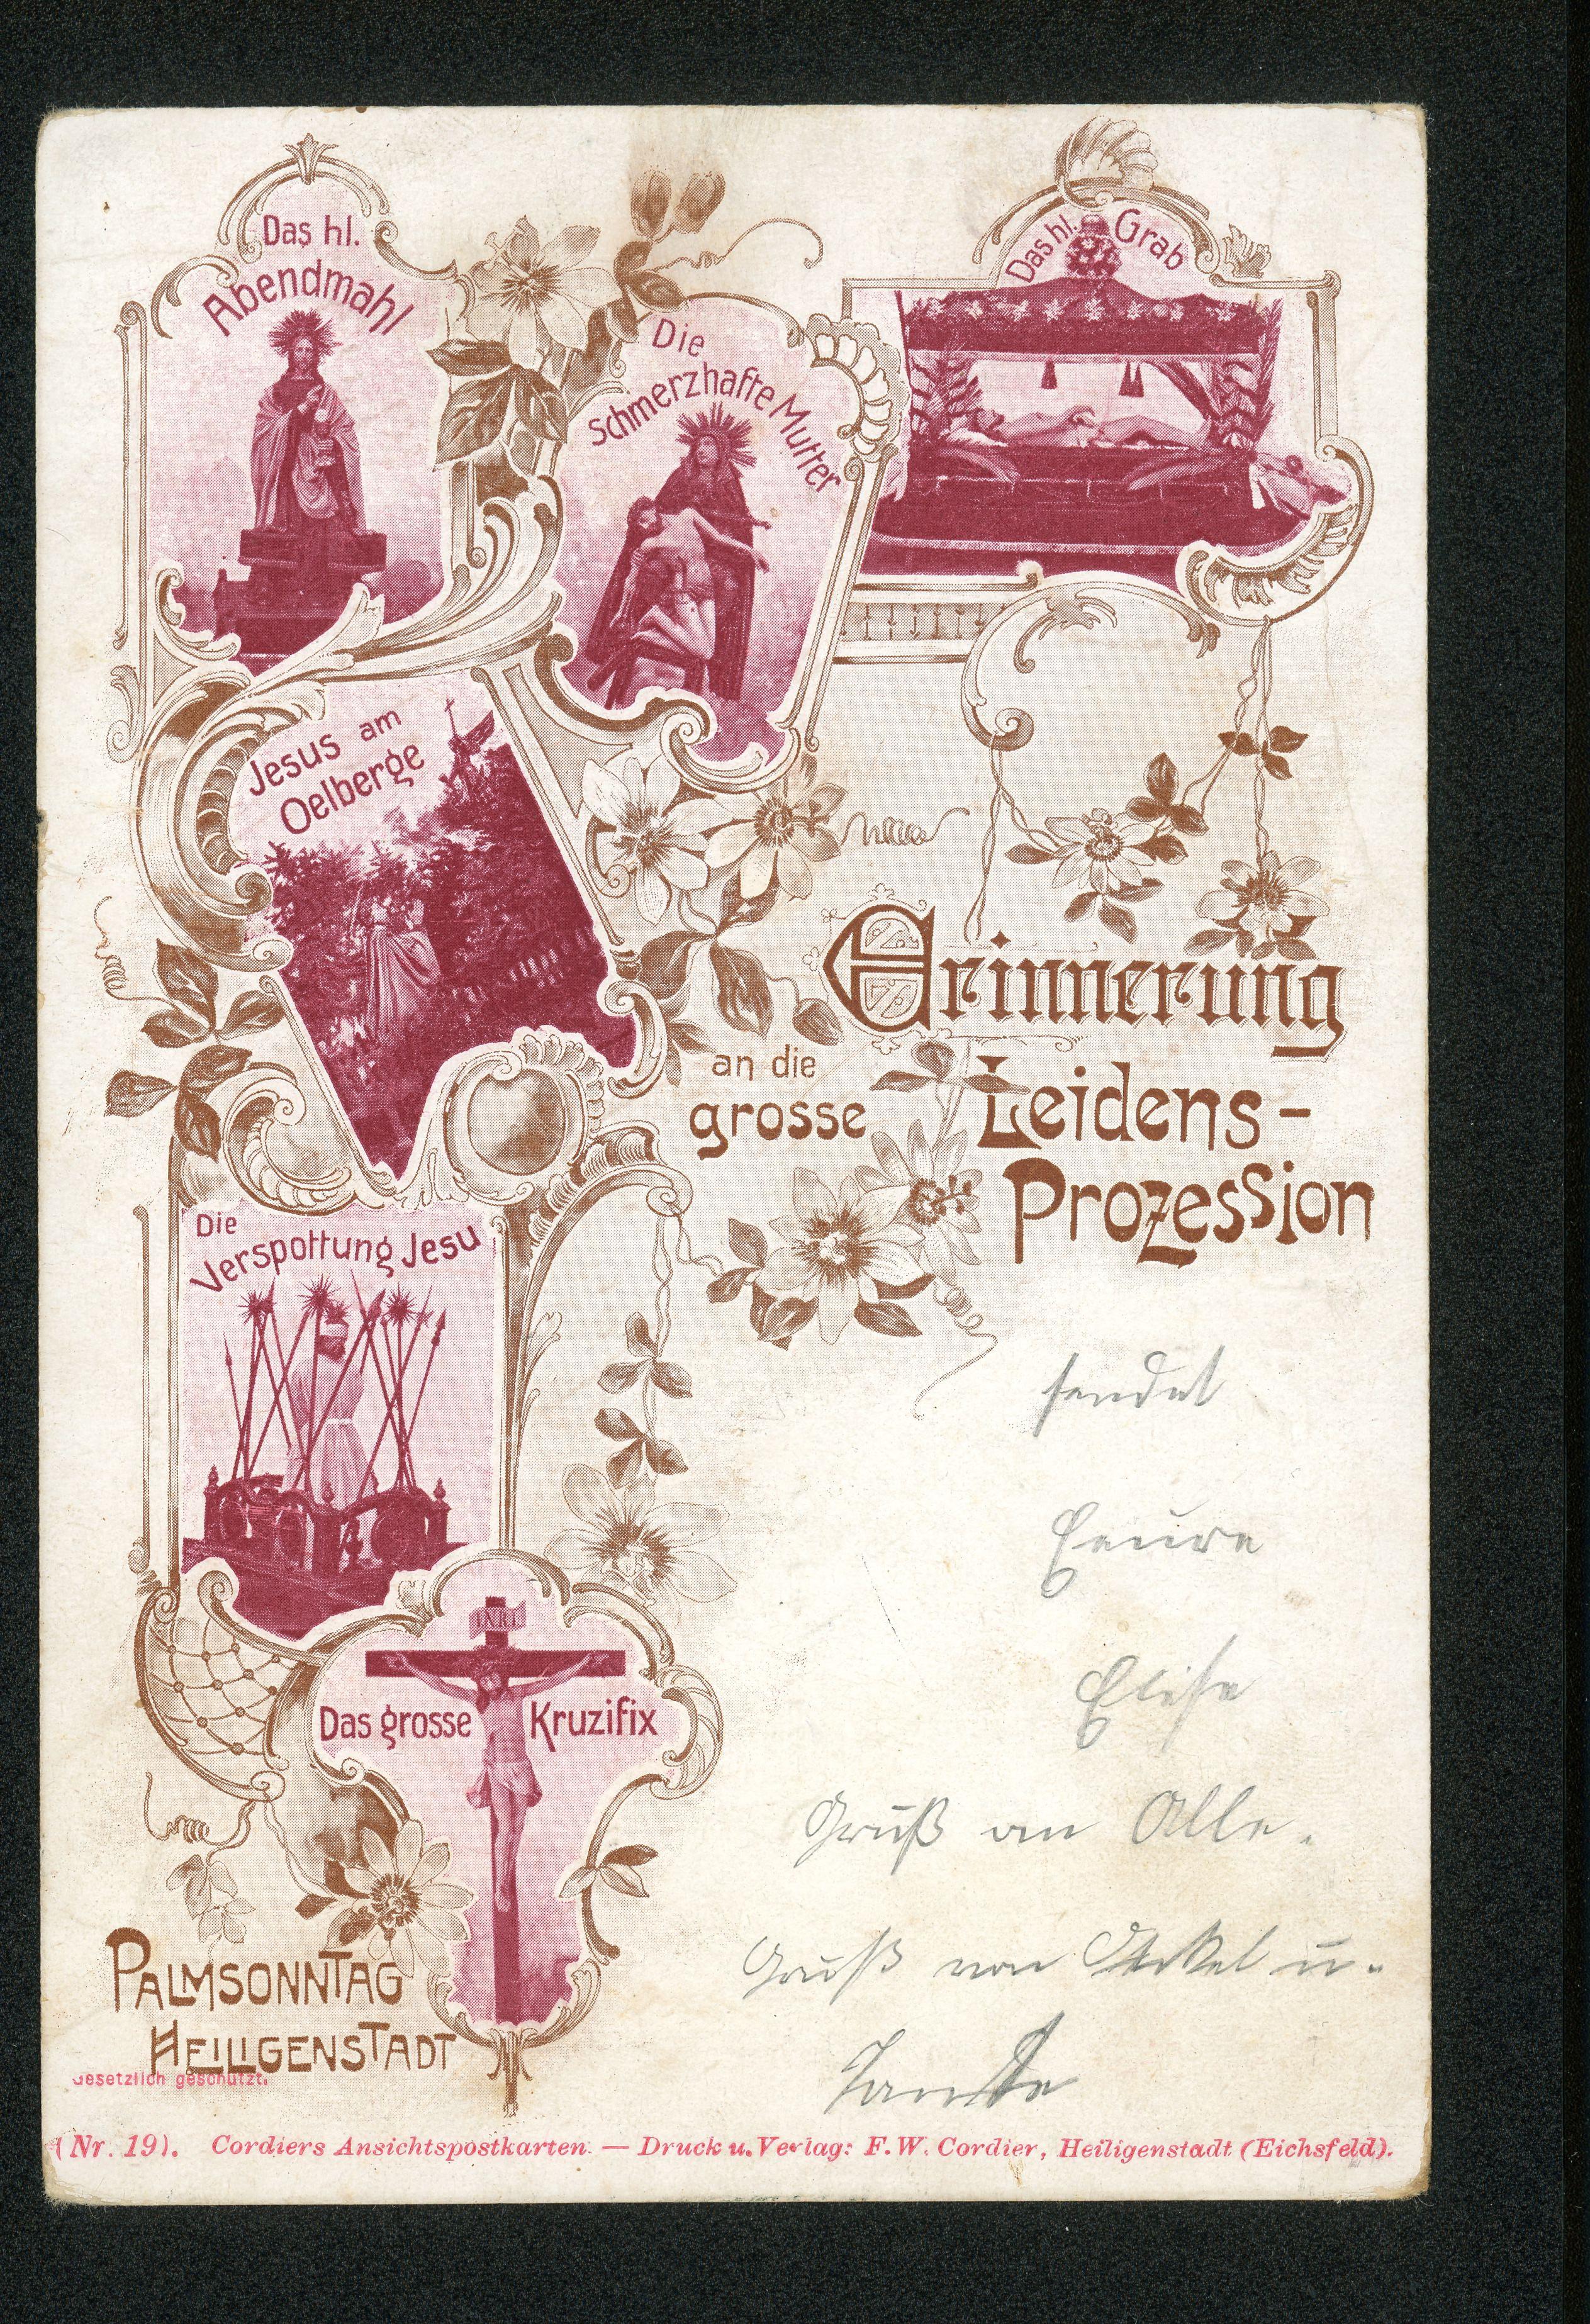 Das hl.
Abendmahl
Die
schmerzhafte Mutter
Das hl. Grab
Jesus am
Oelberge
Erinnerung
an die
grosse
Leidens-
Prozession
Die
Verspottung Jesu
INRI
Das grosse Kruzifix
sendet
Eeure
Elise
Gruß an Alle.
Gruß von Onkel u.
Tante
PALMSONNTAG
HEILIGENSTADT
Gesetzlich geschützt.
(Nr. 19). Cordiers Ansichtspostkarten. — Druck u. Verlag: F. W. Cordier, Heiligenstadt (Eichsfeld).